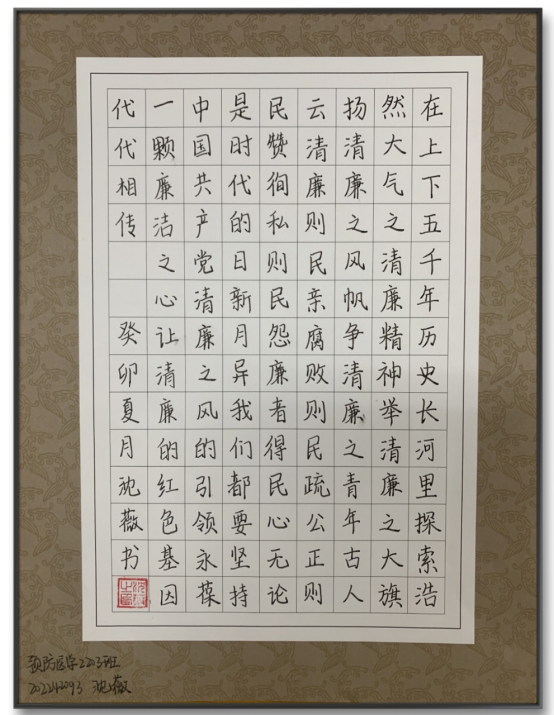 在上下五千年历史长河里探索浩
然大气之清廉精神举清廉之大旗
扬清廉之风帆争清廉之青年古人
云清廉则民亲腐败则民疏公正则
民赞徇私则民怨廉者得民心无论
是时代的日新月异我们都要坚持
中国共产党清廉之风的引领永葆
一颗廉洁之心让清廉的红色基因
代代相传 癸卯夏月沈薇书
预防医学2203班
沈薇